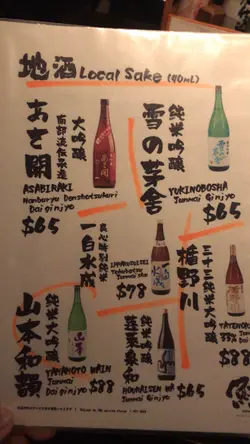 地酒 Local Sake (90mL)
雪の芽舎
純米吟醸
YUKINOBOSHA
Junmai Ginjyo
$65
あさ開
大吟醸
南部流伝承造
ASABIRAKI
Nanburyu Denshotsukuri
Dai ginjyo
$65
楯野川
三十三純米大吟醸
TATENOK
33%
$88
一白水成
良心特別純米
IPPAKUSUISEI
$78
山本和韻
純米大吟醸
YAMAMOTO WAIN
Junmai
Daiginjyo
$88
蓬莱泉和
純米吟醸
HOURAISEN WA
Junmai
Ginjyo